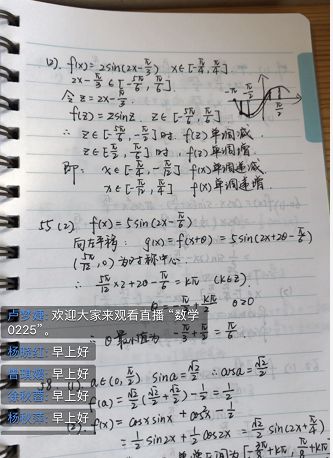 (2). f(x)=2sin(2x-π/3) x∈[-π/4, π/4].
2x-π/3∈[-5π/6, π/6]
令 z=2x-π/3.
f(z)=2sinz. z∈[-5π/6, π/6]
-π
π/2
∴ z∈[-5π/6, -π/2]时, f(z)单调减.
z∈[π/2, π/6]时, f(z)单调增.
即: x∈[-π/4, -π/12] f(x)单调递减
x∈[-π/12, π/4] f(x)单调递增.
55 (2) f(x)=5sin(2x-π/6)
向左平移: g(x)=f(x+θ)=5sin(2x+2θ-π/6)
(5π/12, 0)为对称中心
∴ 5π/12×2+2θ-π/6=kπ (k∈Z)
kπ/2 θ>0
∴ θ最小值为 -π/3+π/2=π/6
卢梦婕: 欢迎大家来观看直播“数学0225”。
杨晓红: 早上好
曾琪媛: 早上好
徐秋蓉: 早上好
杨秋莲: 早上好
(1) a∈(0, π/2) sina=√2/2 ∴cosa=√2/2
f(a)=√2/2(√2/2+√2/2)-1/2=1/2
(2). f(x)=cosxsinx+cos²x-1/2
=1/2sin2x+1/2cos2x=√2/2sin(2x+π/4)
区间为[-3π/8+kπ, π/8+kπ]